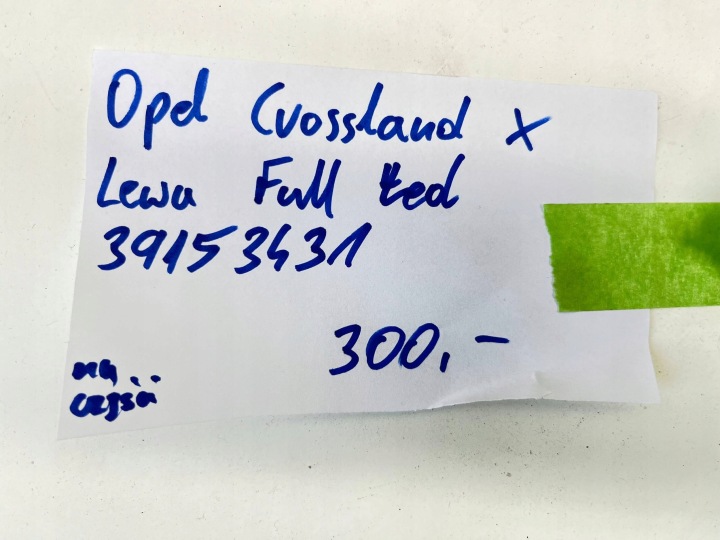 Opel Crossland X
Lewa Full Led
39153431
300,-
na
części